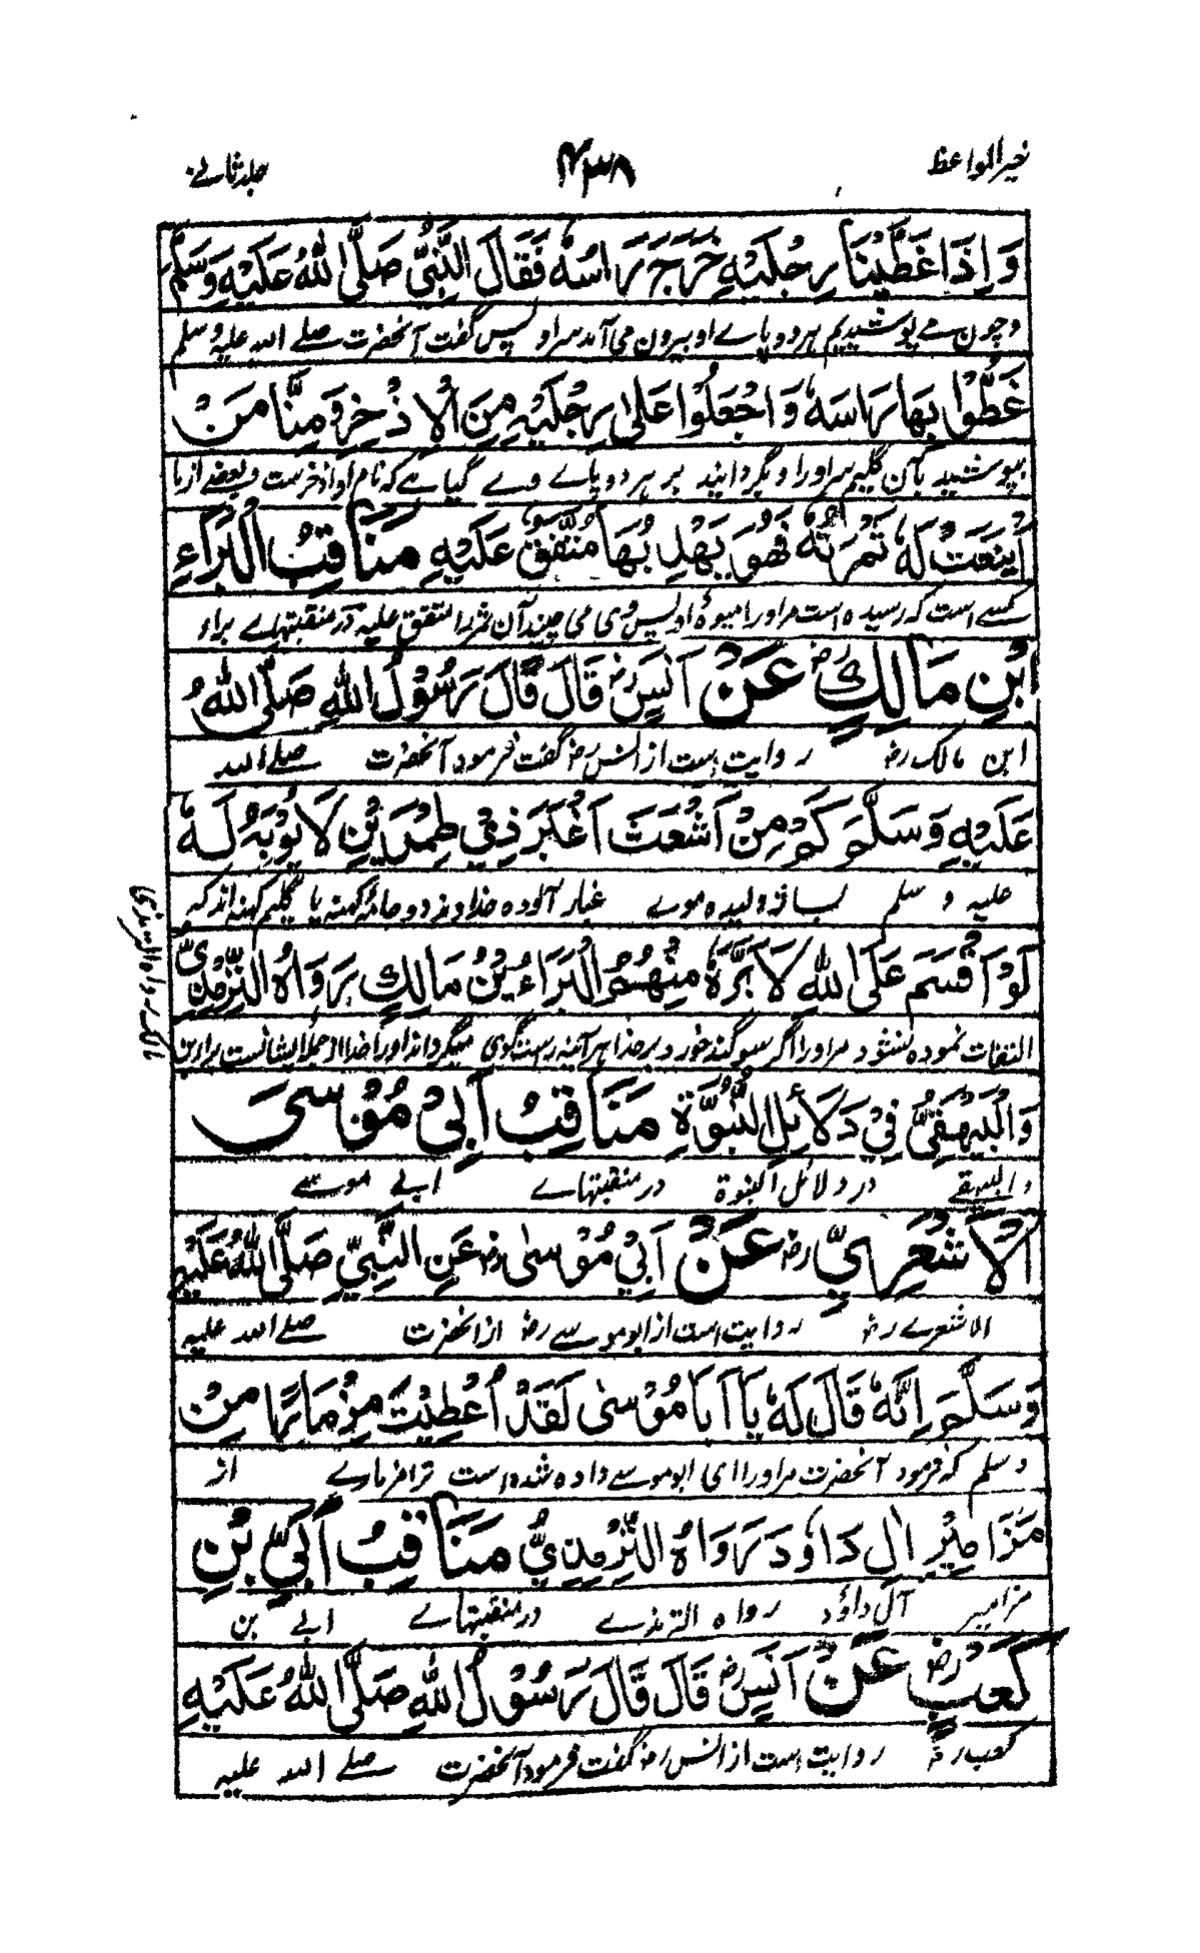 خیر المواعظ ۴۳۸ جلد ثانے
وَاِذَا غَطَّيْنَا رِجْلَيْهِ خَرَجَ رَاسُهٗ فَقَالَ النَّبِيُّ صَلَّى اللهُ عَلَيْهِ وَسَلَّمَ
و چون مے پوشیدیم ہر دو پاے او بیرون می آمد سر او پس گفت آنحضرت صلے اللہ علیہ و سلم
غَطُّوْا بِهَا رَاسَهٗ وَاجْعَلُوْا عَلٰى رِجْلَيْهِ مِنَ الْاِذْخِرِ وَمِنَّا مَنْ
بپوشید بآن گلیم سر او را و بگردانید بر ہر دو پاے وے گیاہے کہ نام او اذخرست و بعضے از ما
اَيْنَعَتْ لَهٗ ثَمَرَتُهٗ فَهُوَ يَهْدِبُهَا مُتَّفَقٌ عَلَيْهِ مَنَاقِبُ الْبَرَاءِ
کسے است کہ رسیدہ است مر او را میوۂ او پس وی می چیند آن ثمر را متفق علیہ در منقبتہاے براء
ابْنِ مَالِكٍ رض عَنْ اَنَسٍ رض قَالَ قَالَ رَسُوْلُ اللهِ صَلَّى اللهُ
ابن مالک رض روایت است از انس رض گفت فرمود آنحضرت صلے اللہ
عَلَيْهِ وَسَلَّمَ كَمْ مِنْ اَشْعَثَ اَغْبَرَ ذِيْ طِمْرَيْنِ لَا يُؤْبَهُ لَهٗ
علیہ و سلم بسا ژولیدہ موے غبار آلودہ خداوند دو جامۂ کہنہ یا گلیم کہنہ اند کہ
لَوْ اَقْسَمَ عَلَى اللهِ لَاَبَرَّهٗ مِنْهُمُ الْبَرَاءُ بْنُ مَالِكٍ رَوَاهُ التِّرْمِذِيُّ
التفات نمودہ نشود مر او را اگر سوگند خورد بر خدا ہر آئینہ راستگوی میگرداند او را خدا از جملۂ ایشانست براء بن
مالک رواہ الترمذی
وَالْبَيْهَقِيُّ فِيْ دَلَائِلِ النُّبُوَّةِ مَنَاقِبُ اَبِيْ مُوْسٰى
والبیہقے در دلائل النبوۃ در منقبتہاے ابے موسے
الْاَشْعَرِيِّ رض عَنْ اَبِيْ مُوْسٰى رض عَنِ النَّبِيِّ صَلَّى اللهُ عَلَيْهِ
الاشعرے رض روایت است از ابو موسے رض از آنحضرت صلے اللہ علیہ
وَسَلَّمَ اِنَّهٗ قَالَ لَهٗ يَا اَبَا مُوْسٰى لَقَدْ اُعْطِيْتَ مِزْمَارًا مِنْ
و سلم کہ فرمود آنحضرت مر او را ای ابو موسے دادہ شدہ است ترا مزمارے از
مَزَامِيْرِ اٰلِ دَاوٗدَ رَوَاهُ التِّرْمِذِيُّ مَنَاقِبُ اُبَيِّ بْنِ
مزامیر آل داؤد رواہ الترمذے در منقبتہاے ابے بن
كَعْبٍ رض عَنْ اَنَسٍ رض قَالَ قَالَ رَسُوْلُ اللهِ صَلَّى اللهُ عَلَيْهِ
کعب رض روایت است از انس رض گفت فرمود آنحضرت صلے اللہ علیہ